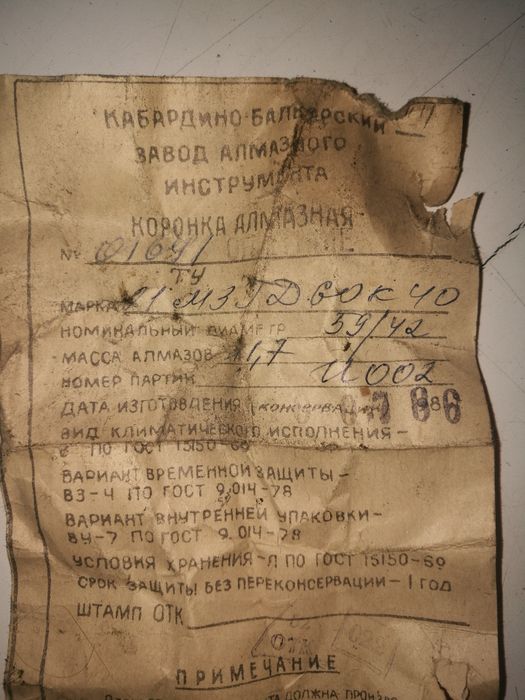 КАБАРДИНО-БАЛКАРСКИЙ
ЗАВОД АЛМАЗНОГО
ИНСТРУМЕНТА
КОРОНКА АЛМАЗНАЯ
№ 01641
ТУ
МАРКА 11 МЗГД60К40
НОМИНАЛЬНЫЙ ДИАМЕТР 59/42
МАССА АЛМАЗОВ
НОМЕР ПАРТИИ И002
ДАТА ИЗГОТОВЛЕНИЯ (КОНСЕРВАЦИИ)
ВИД КЛИМАТИЧЕСКОГО ИСПОЛНЕНИЯ-
ПО ГОСТ 15150-69
ВАРИАНТ ВРЕМЕННОЙ ЗАЩИТЫ-
ВЗ-4 ПО ГОСТ 9.014-78
ВАРИАНТ ВНУТРЕННЕЙ УПАКОВКИ-
ВУ-7 ПО ГОСТ 9.014-78
УСЛОВИЯ ХРАНЕНИЯ-Л ПО ГОСТ 15150-69
СРОК ЗАЩИТЫ БЕЗ ПЕРЕКОНСЕРВАЦИИ-1 ГОД
ШТАМП ОТК
ПРИМЕЧАНИЕ
ДОЛЖНА